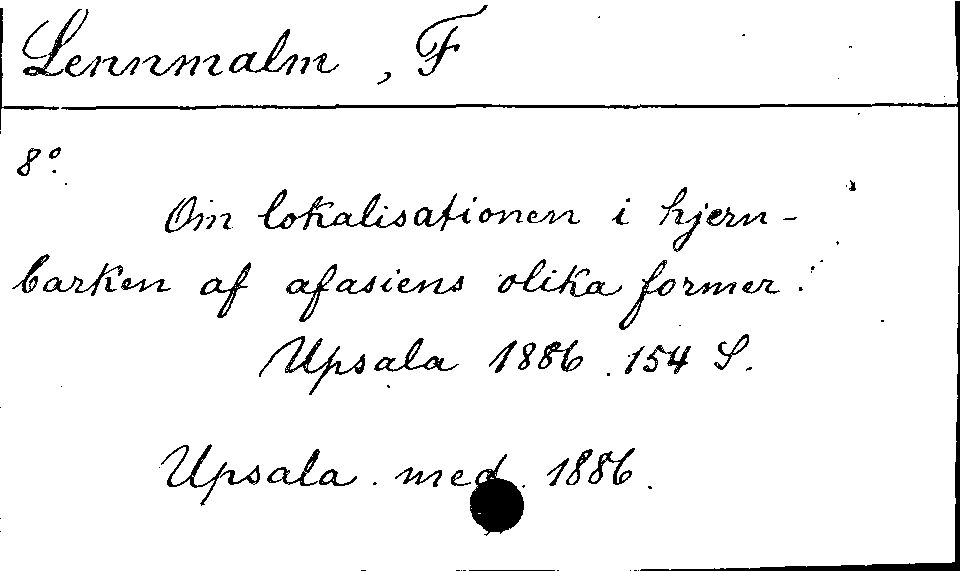 Lennmalm, F
8°.
Om lokalisationen i hjern-
barken af afasiens olika former.
Upsala 1886. 154 S.
Upsala. med. 1886.